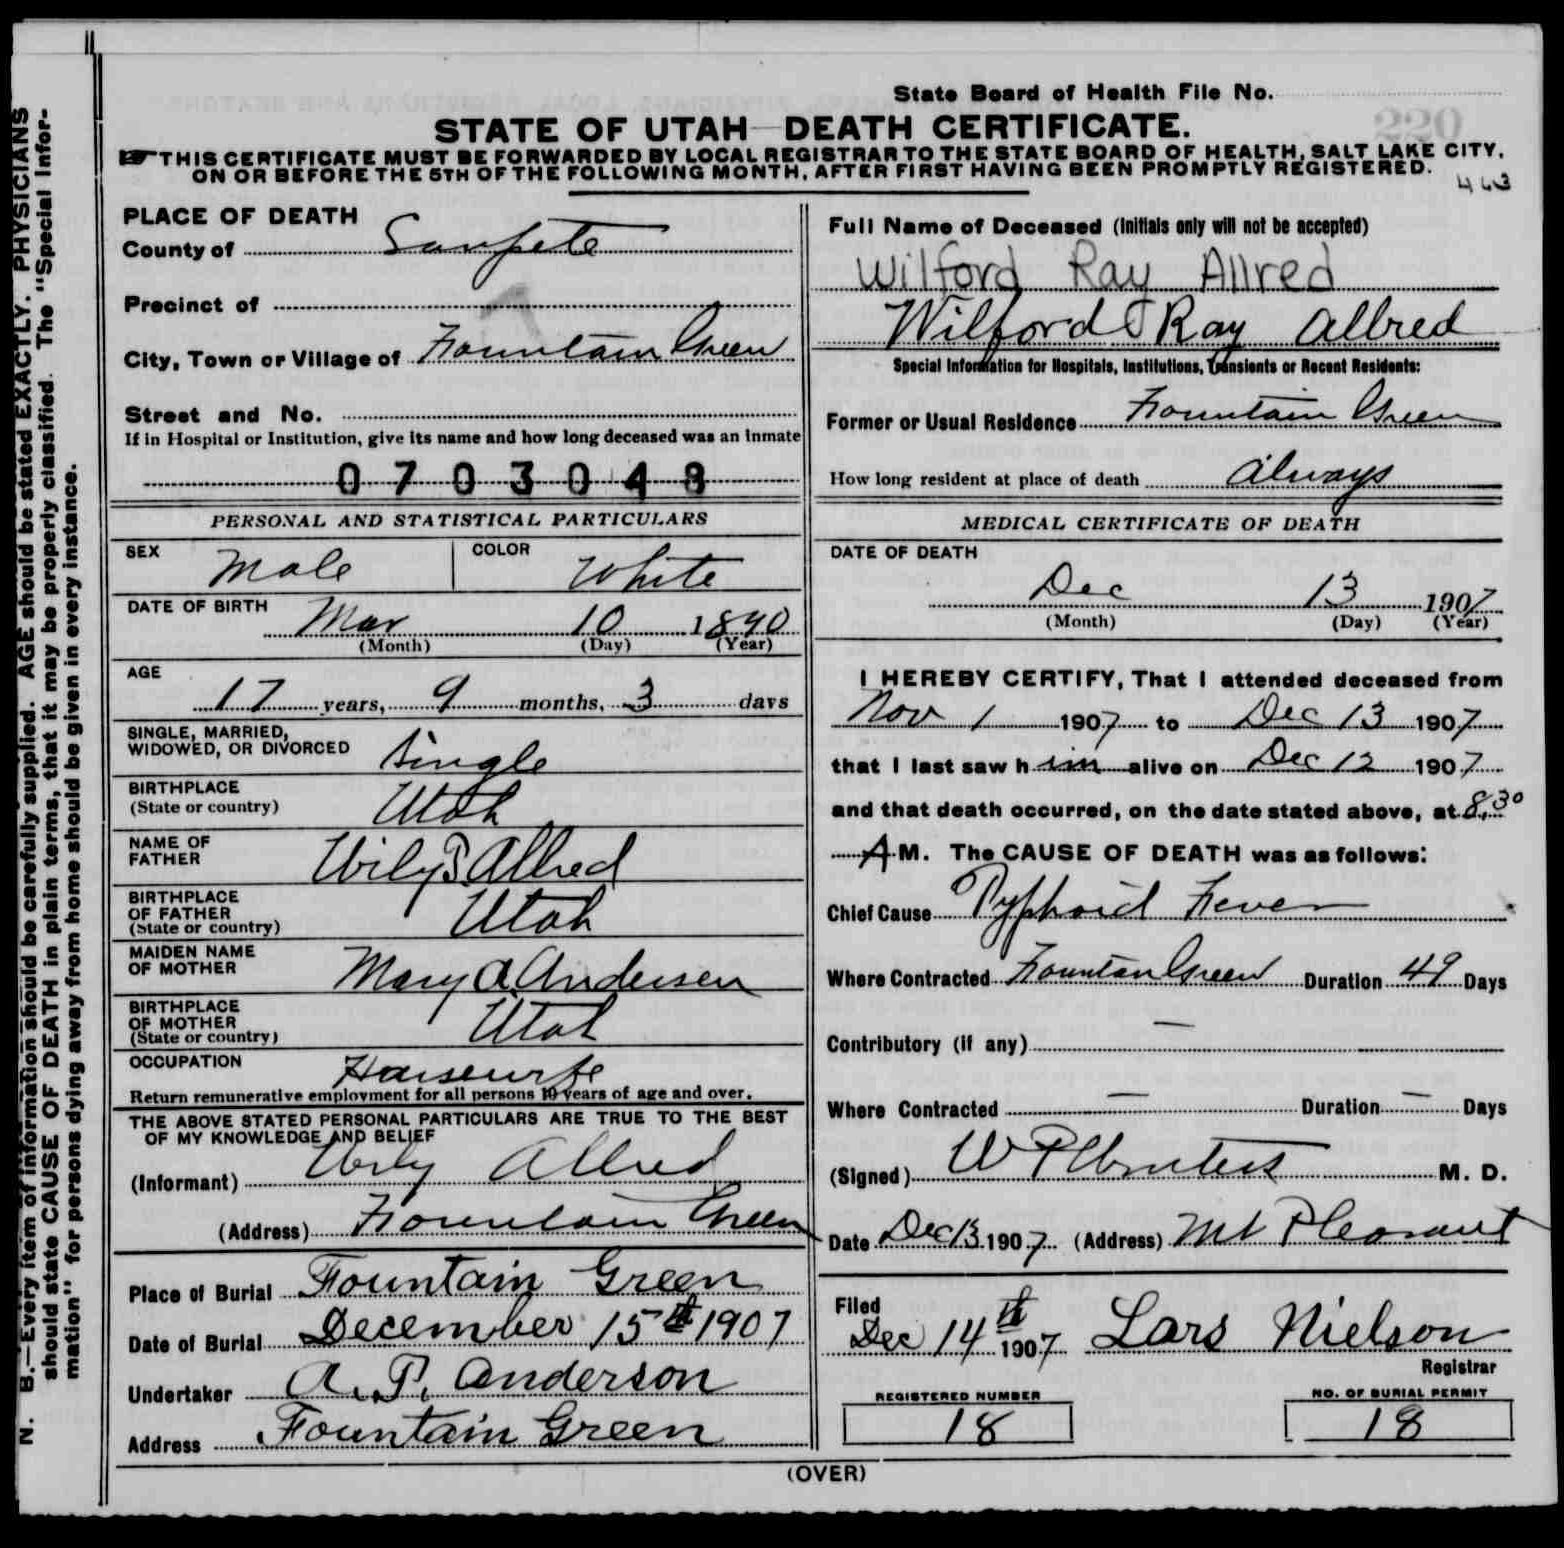 State Board of Health File No.
220
STATE OF UTAH—DEATH CERTIFICATE.
☞THIS CERTIFICATE MUST BE FORWARDED BY LOCAL REGISTRAR TO THE STATE BOARD OF HEALTH, SALT LAKE CITY,
ON OR BEFORE THE 5TH OF THE FOLLOWING MONTH, AFTER FIRST HAVING BEEN PROMPTLY REGISTERED.
463
N. B.—Every item of information should be carefully supplied. AGE should be stated EXACTLY. PHYSICIANS
should state CAUSE OF DEATH in plain terms, that it may be properly classified. The "Special Infor-
mation" for persons dying away from home should be given in every instance.
PLACE OF DEATH
County of Sanpete
Precinct of
City, Town or Village of Fountain Green
Street and No.
If in Hospital or Institution, give its name and how long deceased was an inmate
0703048
PERSONAL AND STATISTICAL PARTICULARS
SEX Male COLOR White
DATE OF BIRTH Mar 10 1890
(Month) (Day) (Year)
AGE
17 years, 9 months, 3 days
SINGLE, MARRIED,
WIDOWED, OR DIVORCED Single
BIRTHPLACE
(State or country) Utah
NAME OF
FATHER Wily P Allred
BIRTHPLACE
OF FATHER
(State or country) Utah
MAIDEN NAME
OF MOTHER Mary A. Andersen
BIRTHPLACE
OF MOTHER
(State or country) Utah
OCCUPATION Housewife
Return remunerative employment for all persons 10 years of age and over.
THE ABOVE STATED PERSONAL PARTICULARS ARE TRUE TO THE BEST
OF MY KNOWLEDGE AND BELIEF
(Informant) Wily Allred
(Address) Fountain Green
Place of Burial Fountain Green
Date of Burial December 15th 1907
Undertaker A. P. Anderson
Address Fountain Green
Full Name of Deceased (Initials only will not be accepted)
Wilford Ray Allred
Wilford Ray Allred
Special Information for Hospitals, Institutions, Transients or Recent Residents:
Former or Usual Residence Fountain Green
How long resident at place of death Always
MEDICAL CERTIFICATE OF DEATH
DATE OF DEATH
Dec 13 1907
(Month) (Day) (Year)
I HEREBY CERTIFY, That I attended deceased from
Nov 1 1907 to Dec 13 1907
that I last saw him alive on Dec 12 1907
and that death occurred, on the date stated above, at 8.30
A M. The CAUSE OF DEATH was as follows:
Chief Cause Typhoid Fever
Where Contracted Fountan Green Duration 49 Days
Contributory (if any) —
Where Contracted — Duration — Days
(Signed) M. D.
Date Dec 13 1907 (Address) Mt Pleasant
Filed
Dec 14th 1907 Lars Nielson
Registrar
REGISTERED NUMBER
18
NO. OF BURIAL PERMIT
18
(OVER)